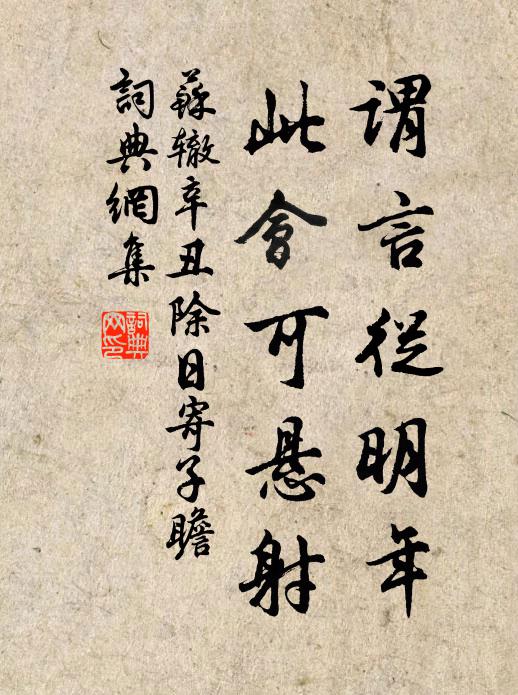 謂言從明年
此會可懸射
蘇辙辛丑除日寄子瞻
詞典網集
詞典网印